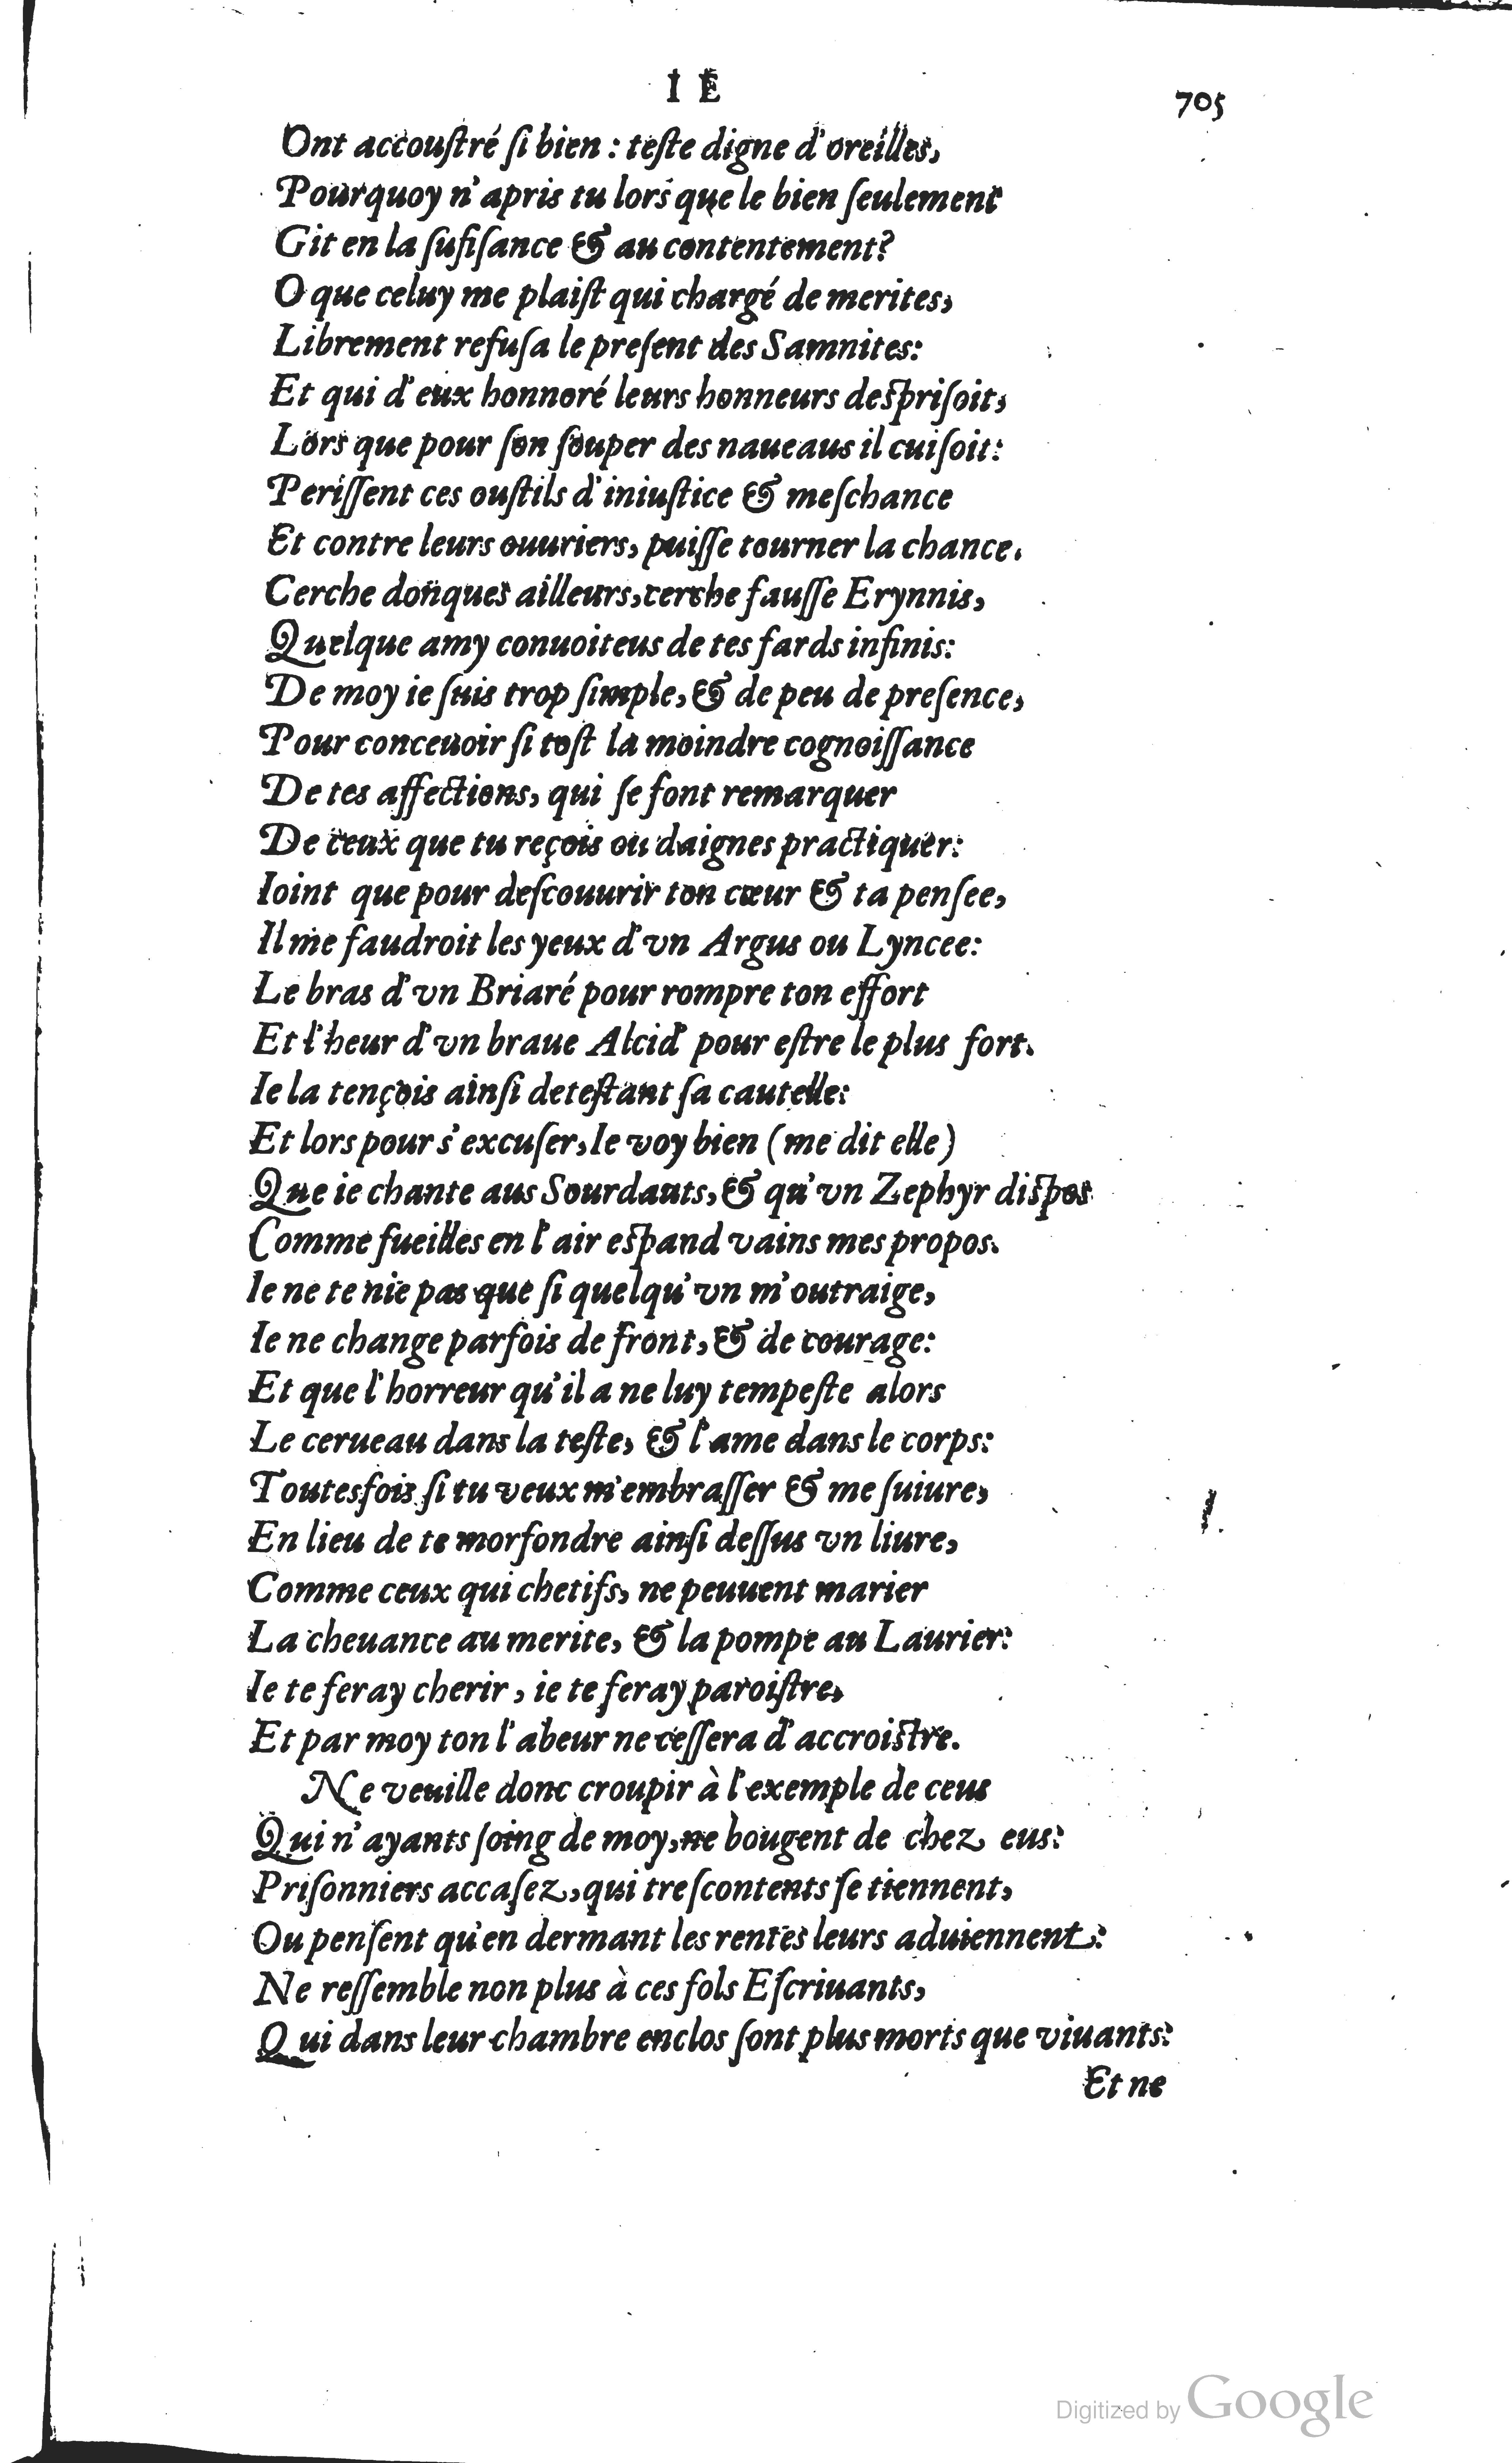 I E
705
Ont accouſtré ſi bien : teſte digne d'oreilles,
Pourquoy n'apris tu lors que le bien ſeulement
Git en la ſufiſance & au contentement?
O que celuy me plaiſt qui chargé de merites,
Librement refuſa le preſent des Samnites:
Et qui d'eux honnoré leurs honneurs deſpriſoit,
Lors que pour ſon ſouper des naueaus il cuiſoit:
Periſſent ces ouſtils d'iniuſtice & meſchance
Et contre leurs ouuriers, puiſſe tourner la chance.
Cerche donques ailleurs, cerche fauſſe Erynnis,
Quelque amy conuoiteus de tes fards infinis:
De moy ie ſuis trop ſimple, & de peu de preſence,
Pour conceuoir ſi toſt la moindre cognoiſſance
De tes affections, qui ſe font remarquer
De ceux que tu reçois ou daignes practiquer:
Ioint que pour deſcouurir ton cœur & ta penſee,
Il me faudroit les yeux d'vn Argus ou Lyncee:
Le bras d'vn Briaré pour rompre ton effort
Et l'heur d'vn braue Alcid' pour eſtre le plus fort.
Ie la tençois ainſi deteſtant ſa cautelle:
Et lors pour s'excuſer, Ie voy bien (me dit elle)
Que ie chante aus Sourdauts, & qu'vn Zephyr diſpos
Comme fueilles en l'air eſpand vains mes propos.
Ie ne te nie pas que ſi quelqu'vn m'outraige,
Ie ne change parfois de front, & de courage:
Et que l'horreur qu'il a ne luy tempeſte alors
Le cerueau dans la teſte, & l'ame dans le corps:
Toutesfois ſi tu veux m'embraſſer & me ſuiure,
En lieu de te morfondre ainſi deſſus vn liure,
Comme ceux qui chetifs, ne peuuent marier
La cheuance au merite, & la pompe au Laurier:
Ie te feray cherir, ie te feray paroiſtre,
Et par moy ton l'abeur ne ceſſera d'accroiſtre.
Ne veuille donc croupir à l'exemple de ceus
Qui n'ayants ſoing de moy, ne bougent de chez eus:
Priſonniers accaſez, qui treſcontents ſe tiennent,
Ou penſent qu'en dermant les rentes leurs aduiennent:
Ne reſſemble non plus à ces fols Eſcriuants,
Qui dans leur chambre enclos ſont plus morts que viuants:
Et ne
Digitized by Google